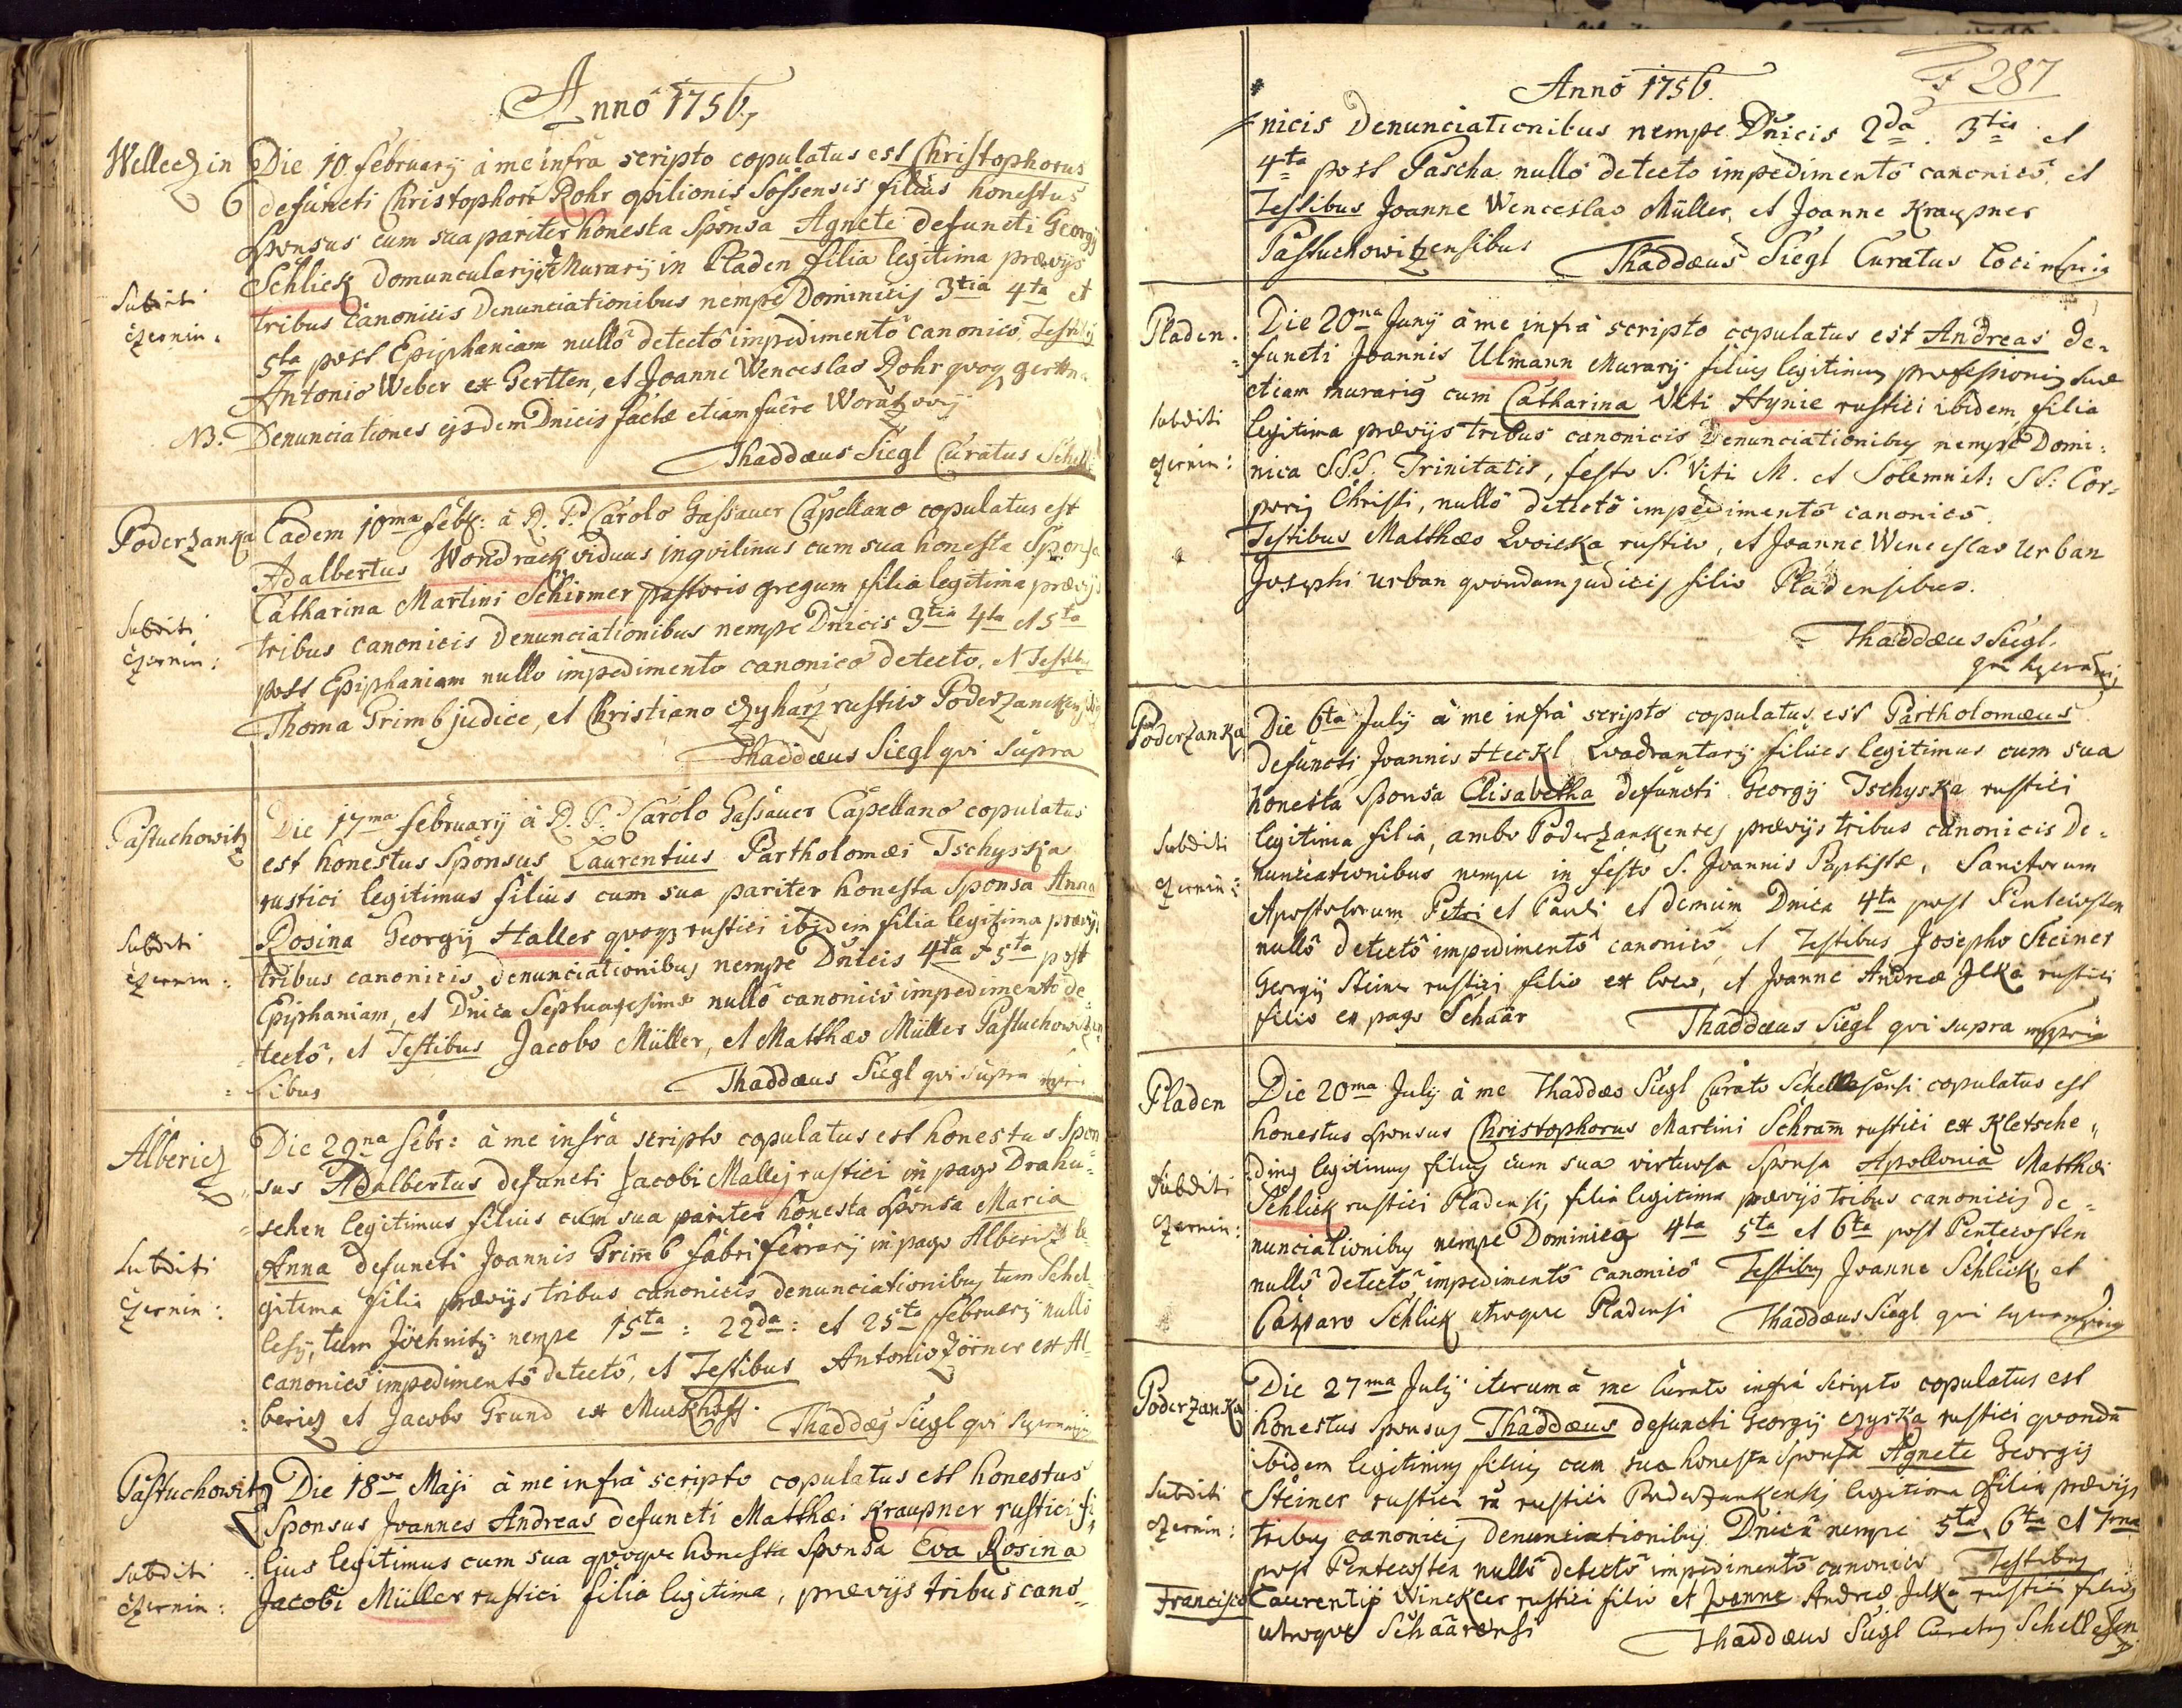 Anno 1756
Welleczin Die 10 february à me infra scripto copulatus est Christophorus
defuncti Christophori Rohr opilionis Sossensis filius honestus
Sponsus cum sua pariter honesta Sponsa Agnete defuncti Georgij
Schlick domuncularij et Murarij in Pladen filia legitima prævijs
Subditi tribus canonicis Denunciationibus nempe Dominicis 3tia 4ta et
Czernin: 5ta post Epiphaniam nullô detectô impedimentô canonicô, Testibus
Antonio Weber ex Gertten, et Joanne Wenceslao Rohr quoq
NB. Denunciationes ejsdem Dnicis factæ etiam fuêre
Thaddæus Siegl Curatus
Poderzanka Eadem 10ma febr: à R. P.d Carolo Gassauer Capellano copulatus est
Adalbertus Wondrack viduus inqvilinus cum sua honesta Sponsa
Catharina Martini Schirmer pastoris gregum filia legitima prævijs
Subditi tribus canonicis denunciationibus nempe Dnicis 3tia 4ta et 5ta
Czernin: post Epiphaniam nullo impedimento canonico detecto. et Testibus
Thoma Grimb judice, et Christiano Czyharz rustico
Thaddæus Siegl qvi supra
Pastuchowitz Die 17ma february à R. P.d Carolo Gassauer Capellano copulatus
est honestus Sponsus Laurentius Partholomæi Tschysska
rustici legitimus filius cum sua pariter honesta Sponsa Anna
Rosina Georgij Haller qvoqz rustici ibidem filia legitima prævijs
Subditi tribus canonicis denunciationibus nempe Dnicis 4ta & 5ta post
Czernin: Epiphaniam, et Dnica Septuagesimæ nullô canonicô impedimento de-
tectô, et Testibus Jacobo Müller, et Matthæo Müller Pastuchowitzen-
sibus Thaddæus Siegl qvi supra mpria
Albericz Die 29na febr: à me infra scripto copulatus est honestus Spon-
sus Adalbertus defuncti Jacobi Mallej rustici in pago Drahu-
schen legitimus filius cum sua pariter honesta Sponsa Maria
Anna defuncti Joannis Grimb fabri ferrarij in pago Albericz le-
Subditi gitima filia prævijs tribus canonicis denunciationibus tum Schel-
Czernin: lesij, tum Jechnitij nempe 15ta: 22da: et 25ta february nullô
canonicô impedimentô detectô, et Testibus Antonio Zörner ex Al-
bericz et Jacobo Grund ex Murkhoff. Thaddæg Siegl qvi
Pastuchowitz Die 18va Maji à me infra scripto copulatus est honestus
Sponsus Joannes Andreas defuncti Matthæi Kraupner rustici fi-
Subditi lius legitimus cum sua qvoqve honesta Sponsa Eva Rosina
Czernin: Jacobi Müller rustici filia legitima, prævijs tribus cano-
Anno 1756. F 287
nicis Denunciationibus nempe Dnicis 2da. 3tia et
4ta post Pascha nullô detecto impedimentô canonicô, et
Testibus Joanne Wenceslao Müller, et Joanne Kraupner
Pastuchowitzensibus Thaddæus Siegl Curatus loci mpria
Pladen. Die 20ma Junij à me infra scripto copulatus est Andreas de-
functi Joannis Ulmann Murarij filius legitimus professionis suæ
etiam murarig cum Catharina Viti Hynie rustici ibidem filia
Subditi legitima prævijs tribus canonicis Denunciationibus nempe Domi-
Czernin: nica SSS. Trinitatis, festo S. Viti M. et Solemnit: SS: Cor-
poris Christi, nullô detectô impedimentô canonicô.
Testibus Matthæo Zwoiska rustico, et Joanne Wenceslao Urban
Josephi Urban qvondam judicis filio Pladensibus.
Thaddæus Siegl
Poderzanka Die 6ta July à me infra scripto copulatus est Partholomæus
defuncti Joannis Heckl Qvadrantarij filius legitimus cum sua
honesta Sponsa Elisabetha defuncti Georgij Tschyska rustici
Subditi legitima filia, ambo Poderzankenses prævijs tribus canonicis De-
Czernin: nunciationibus nempe in festo S. Joannis Baptistæ, Sanctorum
Apostolorum Petri et Pauli et demum Dnica 4ta post Pentecosten
nullô detectô impedimentô canonicô, et Testibus Josepho Steiner
Georgij Steiner rustici filio ex loco, et Joanne Andreæ Jlka rustici
filio ex pago Schaar Thaddæus Siegl qvi supra mppria
Pladen Die 20ma July à me Thaddæo Siegl Curato Schellesensi copulatus est
honestus Sponsus Christophorus Martini Schram rustici ex Kletsche-
ding legitimus filius cum sua virtuosa Sponsa Apollonia Matthæi
Subditi Schlick rustici Pladensis filia legitima prævijs tribus canonicis de-
Czernin: nunciationibus nempe Dominica 4ta 5ta et 6ta post Pentecosten
nullô detectô impedimentô canonicô Testibus Joanne Schlick et
Casparo Schlick utroqve Pladensi Thaddæus Siegl qvi
Poderzanka Die 27ma July iterum à me Curato infra scripto copulatus est
honestus Sponsus Thaddæus defuncti Georgij Czyska rustici qvondā
ibidem legitimus filius cum sua honesta Sponsa Agnete Georgij
Subditi Steiner rustici rustici Poderzankensis legitima filia prævijs
Czernin: tribus canonicis denunciationibus Dnica nempe 5ta, 6ta et 7ma
post Pentecosten nullô detectô impedimentô canonico Testibus
Francisco Laurentij Winckler rustici filio et Joanne Andreæ Jlka rustici filio
utroqve Schaarensi Thaddæus Siegl Curatus